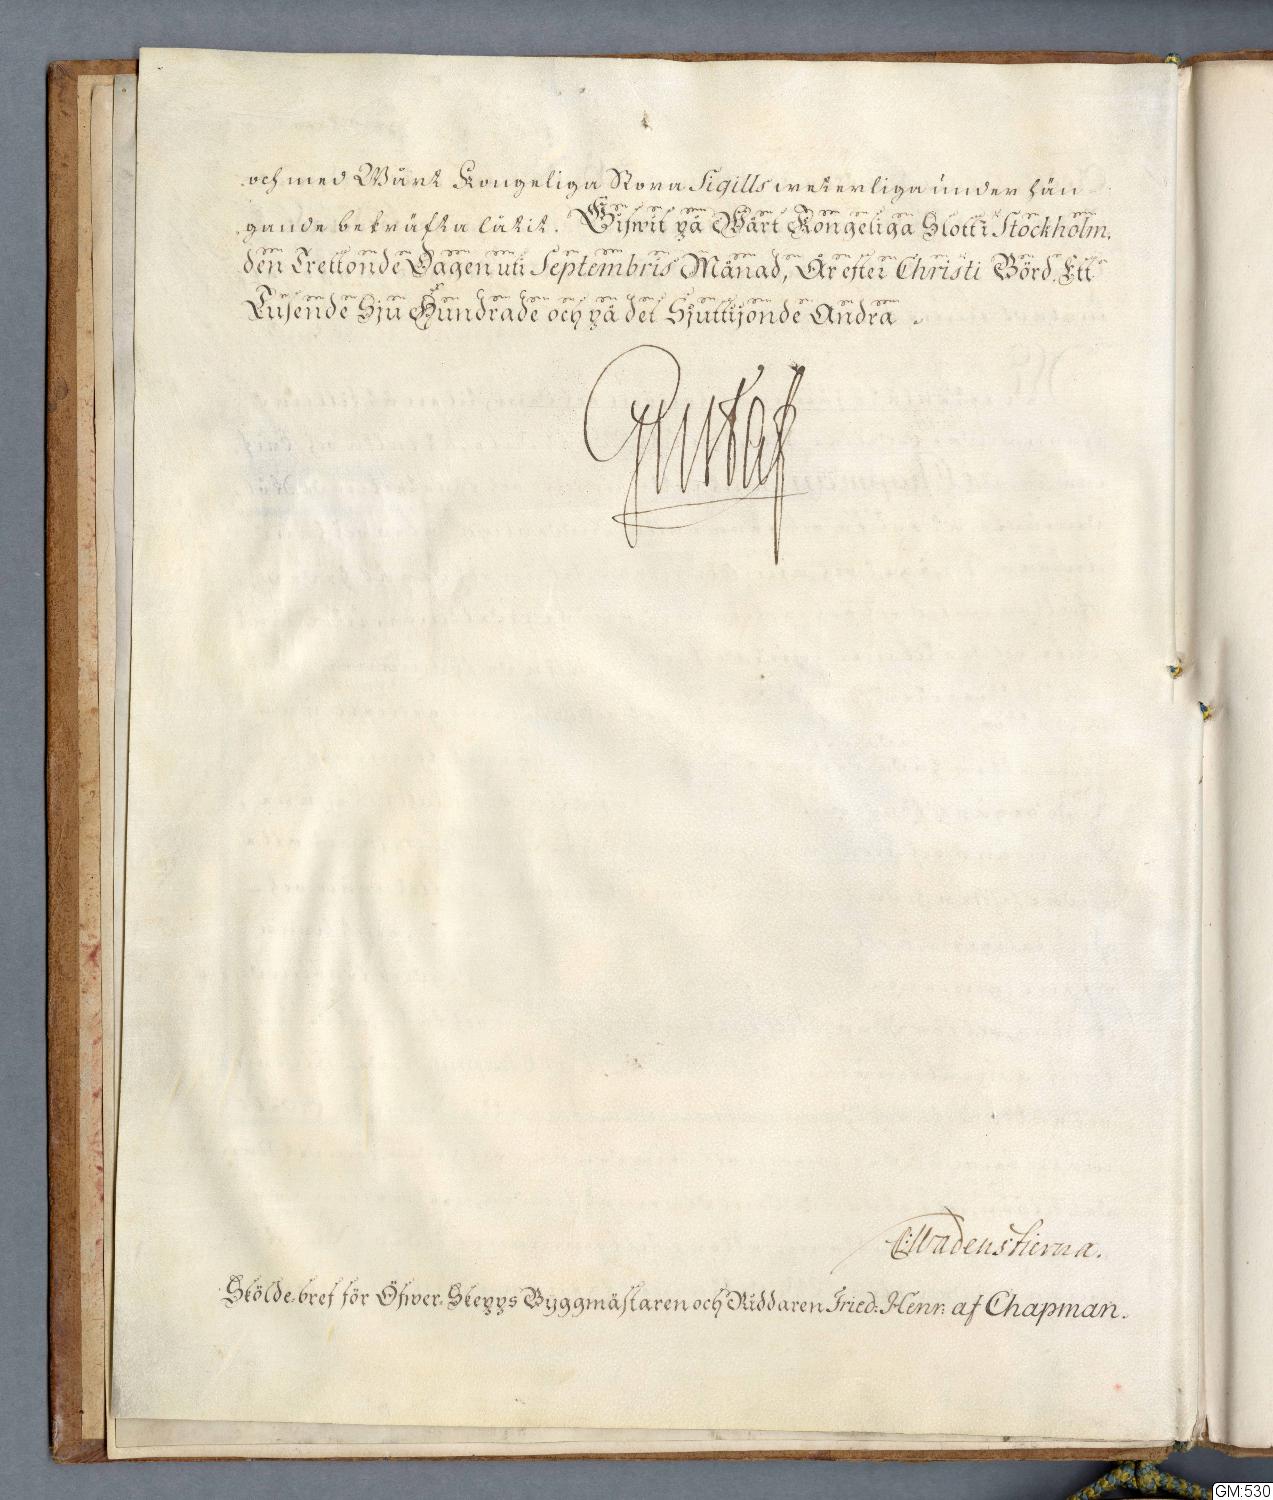 och med Wårt Kongeliga Stora Sigills weterliga under hän
gande bekräfta låtit. Gifwit på Wårt Kongeliga Slott i Stockholm,
den Trettonde Dagen uti Septembris Månad, År efter Christi Börd. Ett
Tusende Sju Hundrade och på det Sjuttijonde Andra.
Gustaf
Wadenstierna.
Skölde-bref för Öfwer-Skepps Byggmästaren och Riddaren Fried: Henr: af Chapman.
GM:530